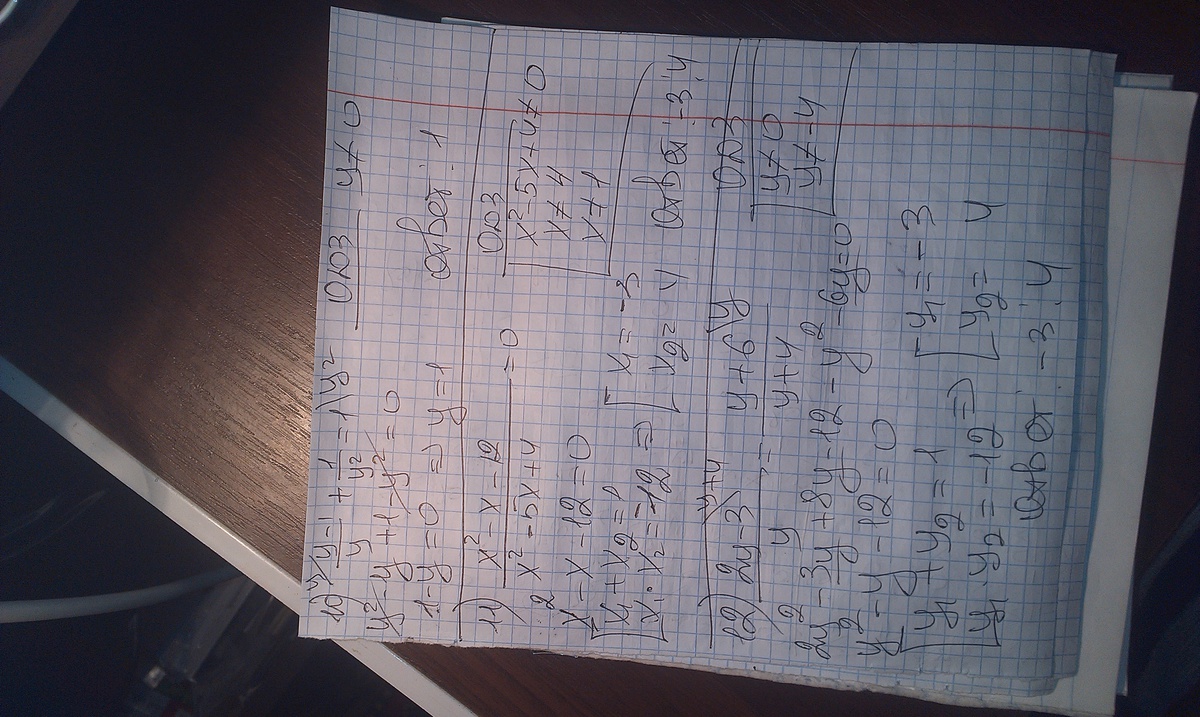 10) ʸ\ (y-1)/y + 1/y² = 1\y² ОДЗ y≠0
y²-y+1-y²=0
1-y=0 => y=1 ответ: 1
11) (x²-x-12)/(x²-5x+4) = 0 ОДЗ
x²-5x+4≠0
x≠4
x≠1
x²-x-12=0
[x₁+x₂=1
x₁·x₂=-12 => [x₁=-3
x₂=4 ответ: -3;4
12) (2y-3)/y \y+4 = (y+6)/(y+4) \y ОДЗ
[y≠0
y≠-4
2y²-3y+8y-12-y²-6y=0
y²-y-12=0
[y₁+y₂=1
y₁·y₂=-12 => [y₁=-3
y₂=4
ответ: -3;4